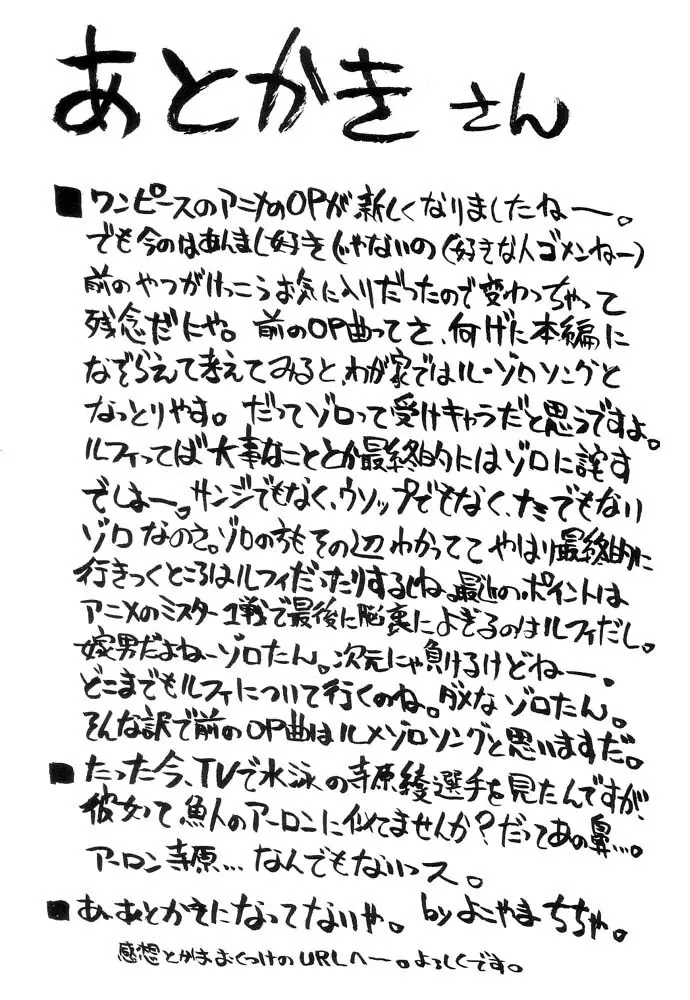 あとがき さん
■ワンピースのアニメのOPが新しくなりましたねー。
でも今のはあんまし好きじゃないの(好きな人ゴメンねー)
前のやつがけっこうお気に入りだったので変わっちゃって
残念だにゃ。前のOP曲ってさ、何げに本編に
なぞらえて考えてみると、わが家ではル・ゾロソングと
なっとりやす。だってゾロって受けキャラだと思うですよ。
ルフィってば大事なこととか最終的にはゾロに託す
でしょー。サンジでもなく、ウソップでもなく、ナミでもない
ゾロなのさ。ゾロの方もその辺わかってて やはり最終的に
行きつくところはルフィだったりするしね。最近のポイントは
アニメのミスター1戦で最後に脳裏によぎるのはルフィだし。
嫁男だよねーゾロたん。次元にゃ負けるけどねー。
どこまでもルフィについて行くのね。ダメなゾロたん。
そんな訳で前のOP曲はル×ゾロソングと思いますだ。
■たった今、TVで水泳の寺原綾選手を見たんですが、
彼女って魚人のアーロンに似てませんか?だってあの鼻…。
アーロン寺原…なんでもないっス。
■あ、あとがきになってないや。byよこやまちちゃ。
感想とかはおくつけのURLへー。よろしくです。